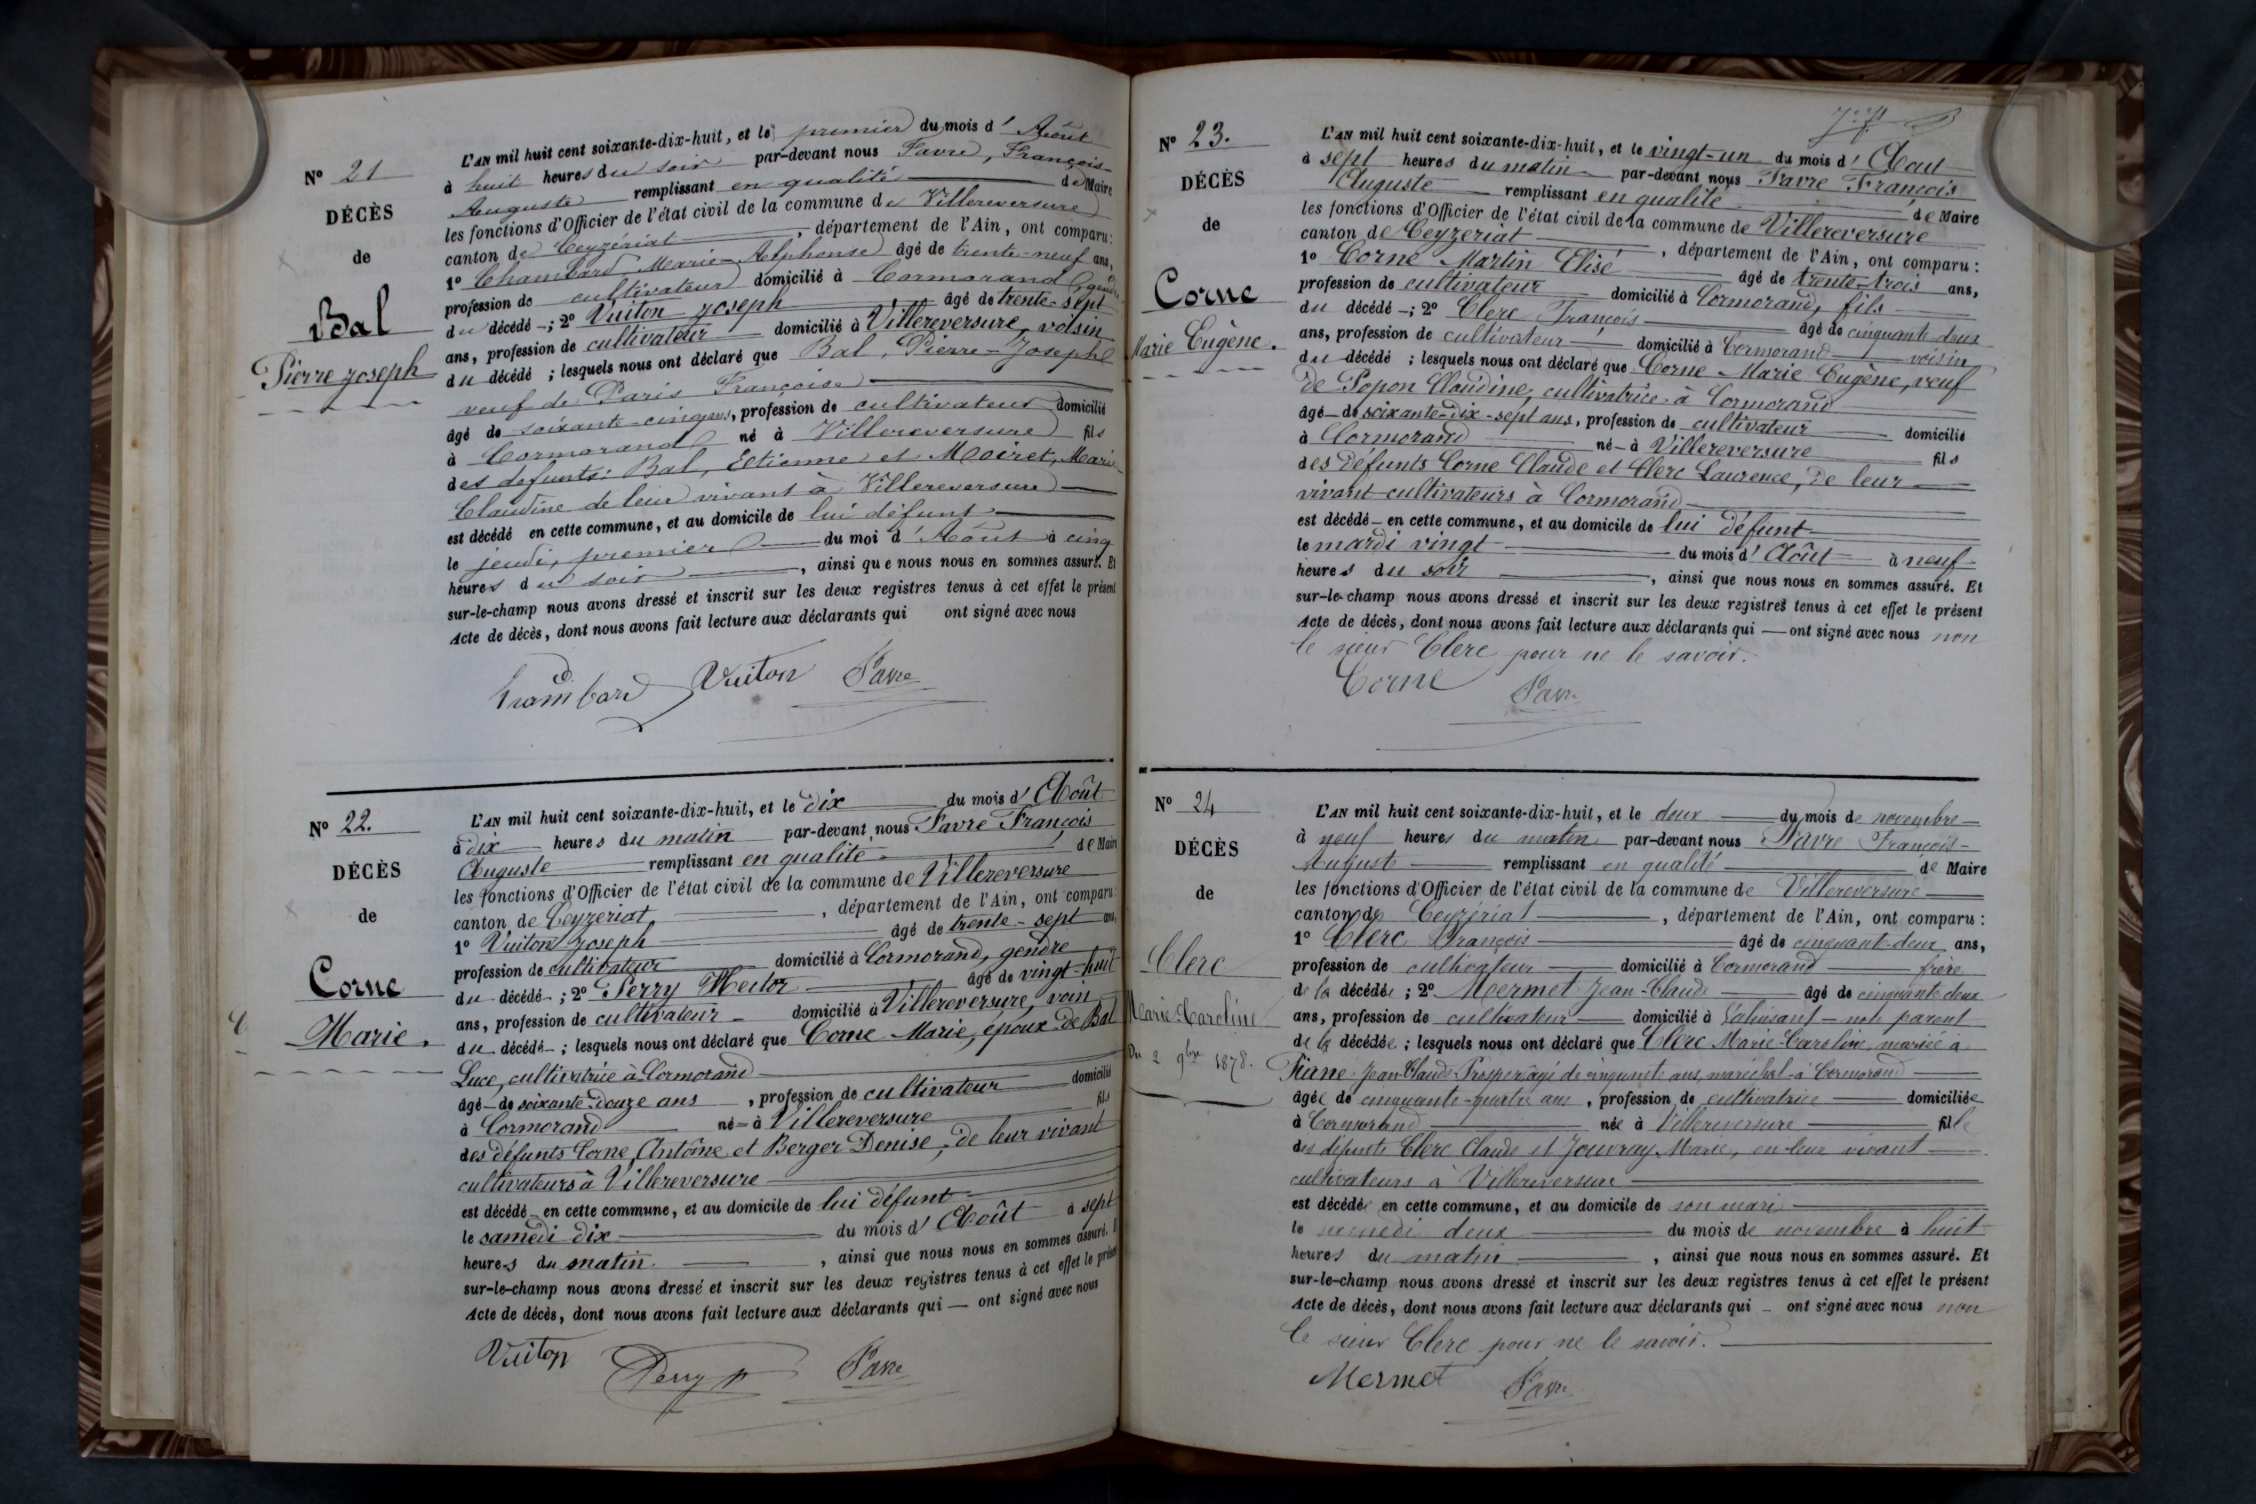 N° 21
DÉCÈS
de
Bal
Pierre Joseph
L'AN mil huit cent soixante-dix-huit, et le premier du mois d' Août
à huit heures du soir par-devant nous Favre, François-
Auguste remplissant en qualité de Maire
les fonctions d'Officier de l'état civil de la commune de Villereversure
canton de Ceyzériat, département de l'Ain, ont comparu:
1° Chambard Marie-Alphonse âgé de trente-neuf ans,
profession de cultivateur domicilié à Cormorand, gendre
du décédé ; 2° Vuiton Joseph âgé de trente-sept
ans, profession de cultivateur domicilié à Villereversure, voisin
du décédé ; lesquels nous ont déclaré que Bal, Pierre-Joseph
veuf de Paris Françoise
âgé de soixante-cinq ans, profession de cultivateur domicilié
à Cormorand né à Villereversure fils
des défunts: Bal, Etienne et Moiret, Marie
Claudine de leur vivant à Villereversure
est décédé en cette commune, et au domicile de lui défunt
le jeudi, premier du moi d' Août à cinq
heures du soir, ainsi que nous nous en sommes assuré. Et
sur-le-champ nous avons dressé et inscrit sur les deux registres tenus à cet effet le présent
Acte de décès, dont nous avons fait lecture aux déclarants qui ont signé avec nous
Chambard Vuiton Favre
N° 22.
DÉCÈS
de
Corne
Marie.
L'AN mil huit cent soixante-dix-huit, et le dix du mois d' Août
à dix heures du matin par-devant nous Favre François
Auguste remplissant en qualité de Maire
les fonctions d'Officier de l'état civil de la commune de Villereversure
canton de Ceyzeriat, département de l'Ain, ont comparu:
1° Vuiton Joseph âgé de trente-sept ans,
profession de cultivateur domicilié à Cormorand, gendre
du décédé ; 2° Perry Hector âgé de vingt-huit
ans, profession de cultivateur domicilié à Villereversure, voin
du décédé ; lesquels nous ont déclaré que Corne Marie, époux de Bal
Luce, cultivatrice à Cormorand
âgé de soixante-douze ans, profession de cultivateur domicilié
à Cormorand né à Villereversure fils
des défunts Corne, Antoine et Berger Denise, de leur vivant
cultivateurs à Villereversure
est décédé en cette commune, et au domicile de lui défunt
le samedi dix du mois d' Août à sept
heures du matin, ainsi que nous nous en sommes assuré. Et
sur-le-champ nous avons dressé et inscrit sur les deux registres tenus à cet effet le présent
Acte de décès, dont nous avons fait lecture aux déclarants qui — ont signé avec nous
Vuiton Perry Favre
N° 23.
DÉCÈS
de
Corne
Marie Eugène.
L'AN mil huit cent soixante-dix-huit, et le vingt-un du mois d' Août
à sept heures du matin par-devant nous Favre François
Auguste remplissant en qualité de Maire
les fonctions d'Officier de l'état civil de la commune de Villereversure
canton de Ceyzeriat, département de l'Ain, ont comparu:
1° Corne Martin Elisé âgé de trente-trois ans,
profession de cultivateur domicilié à Cormorand, fils
du décédé ; 2° Clerc François âgé de cinquante deux
ans, profession de cultivateur domicilié à Cormorand voisin
du décédé ; lesquels nous ont déclaré que Corne Marie Eugène, veuf
de Popon Claudine, cultivatrice à Cormorand
âgé de soixante-dix-sept ans, profession de cultivateur domicilié
à Cormorand né à Villereversure fils
des défunts Corne Claude et Clerc Laurence, de leur
vivant cultivateurs à Cormorand
est décédé en cette commune, et au domicile de lui défunt
le mardi vingt du mois d' Août à neuf
heures du soir, ainsi que nous nous en sommes assuré. Et
sur-le-champ nous avons dressé et inscrit sur les deux registres tenus à cet effet le présent
Acte de décès, dont nous avons fait lecture aux déclarants qui — ont signé avec nous non
le sieur Clerc pour ne le savoir.
Corne Favre
N° 24
DÉCÈS
de
Clerc
Marie-Caroline
Du 2 9bre 1878.
L'AN mil huit cent soixante-dix-huit, et le deux du mois de novembre
à neuf heures du matin par-devant nous Favre François-
Auguste remplissant en qualité de Maire
les fonctions d'Officier de l'état civil de la commune de Villereversure
canton de Ceyzériat, département de l'Ain, ont comparu:
1° Clerc François âgé de cinquante-deux ans,
profession de cultivateur domicilié à Cormorand frère
de la décédée ; 2° Mermet Jean-Claude âgé de cinquante deux
ans, profession de cultivateur domicilié à non parent
de la décédée ; lesquels nous ont déclaré que Clerc Marie-Caroline, mariée à
Jean Claude Prosper, âgé de cinquante ans, maréchal à Cormorand
âgée de cinquante-quatre ans, profession de cultivatrice domiciliée
à Cormorand née à Villereversure fille
des défunts Clerc Claude et Jouvray Marie, en leur vivant
cultivateurs à Villereversure
est décédée en cette commune, et au domicile de son mari
le samedi deux du mois de novembre à huit
heures du matin, ainsi que nous nous en sommes assuré. Et
sur-le-champ nous avons dressé et inscrit sur les deux registres tenus à cet effet le présent
Acte de décès, dont nous avons fait lecture aux déclarants qui — ont signé avec nous non
le sieur Clerc pour ne le savoir.
Mermet Favre